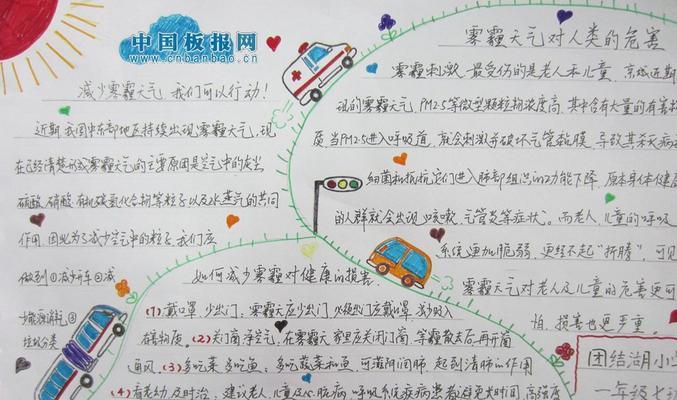 中国板报网
www.cnbanbao.cn
减少雾霾天气 我们可以行动!
近期我国中东部地区持续出现雾霾天气,现
在已经清楚形成雾霾天气的主要原因是空气中的灰尘
硫酸、硝酸、有机碳氢化合物等粒子以及水蒸气的共同
作用.因此为了减少空气中的粒子,我们应
做到①减少开车②减
少能源消耗③
垃圾分类
雾霾天气对人类的危害
雾霾刺激,最受伤的是老人和儿童,京城近期
现的雾霾天气,PM2.5等微型颗粒物浓度高,其中含有大量的有害物
质当PM2.5进入呼吸道,就会刺激并破坏气管黏膜,导致其丧
细菌和抵抗它们进入肺部组织的功能下降,原本身体健康
的人群就会出现"咳嗽、气管炎等症状。而老人、儿童的呼吸
系统更加脆弱,更经不起"折腾",可见
雾霾天气对老人及儿童的危害更可
怕,损害也更严重。
如何减少雾霾对健康的损害
(1)戴口罩,少出门,雾霾天应少出门,必须出门应戴口罩,减少吸入
有害物质,(2)关门窗净空气,在雾霾天家里应关闭门窗,等霾散去后再开窗
通风,(3)多吃菜多吃鱼,多吃蔬菜和鱼,可滋阴润肺,起到清肺的作用
(4)看老幼及时治,建议老人、儿童及心脏病、呼吸系统疾病患者避免长时间、高强度
团结湖小学
一年级七班